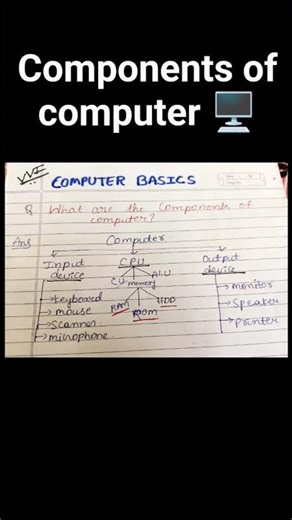 Components of
computer 🖥️
COMPUTER BASICS
Q What are the Components of
computer?
Ans Computer
Input CPU Output
device device
CU memory ALU
RAM ROM HDD
→ keyboard
→ mouse
→ Scanner
→ microphone
→ Monitor
→ Speaker
→ Printer